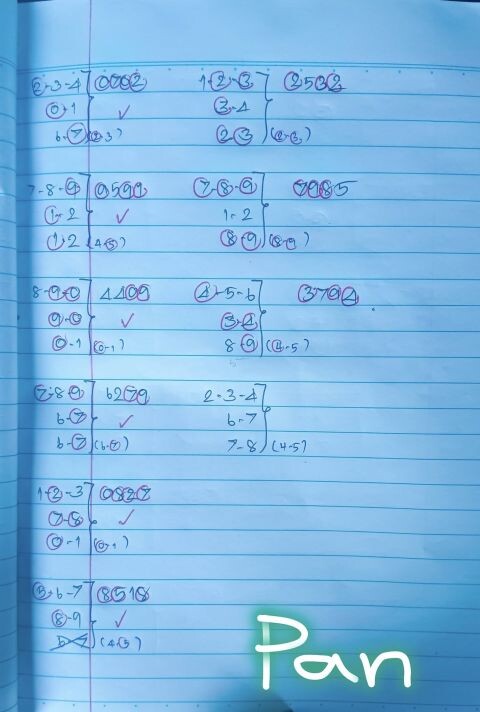 2-3-4 0702 1-2-3 2532
0-1 3-4
6-7 (2-3) 2 3 (2-3)
7-8-9 9599 7-8-9 7985
1-2 1-2
1-2 (4-5) 8-9 (8-9)
8-9-0 4409 4-5-6 3794
9-0 3-4
0-1 (0-1) 8-9 (4-5)
7-8 9 6279 2-3-4
6-7 6-7
6-7 (6-7) 7-8 (4-5)
1-2-3 0827
7-8
0-1 (0-1)
5-6-7 8518
8-9
6-7 (4-5)
Pan